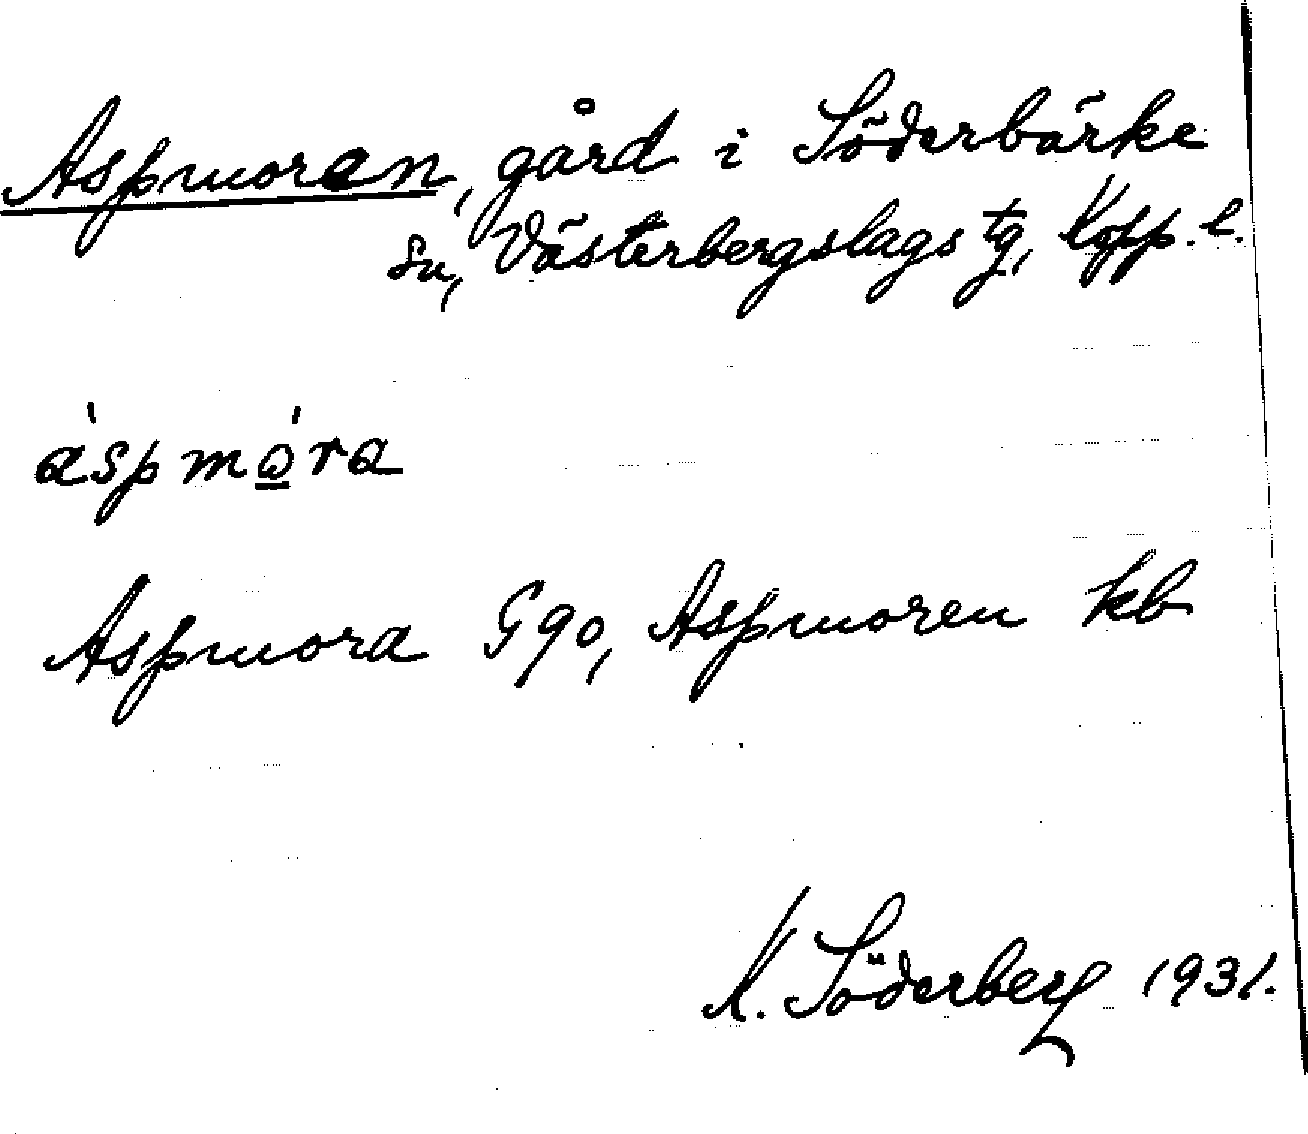 Aspmoren, gård i Söderbärke
sn, Västerbergslags tg, Kopp. l.
áspmώ̲ra
Aspmora G90, Aspmoren kb
K. Söderberg 1931.